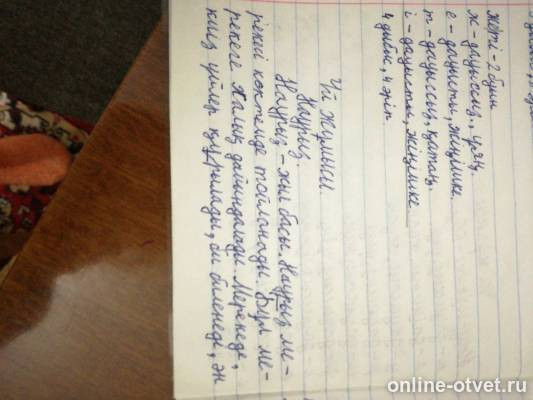 жеті - 2 буын
ж - дауыссыз, ұяң.
е - дауысты, жіңішке.
т - дауыссыз, қатаң.
і - дауысты, жіңішке
4 дыбыс, 4 әріп.
Үй жұмысы.
Наурыз.
Наурыз - жыл басы. Наурыз ме-
рекесі көктемде тойланады. Бұл ме-
рекеге халық дайындалады. Мерекеде,
киіз үйлер құрылады, би биленеді, ән
online-otvet.ru